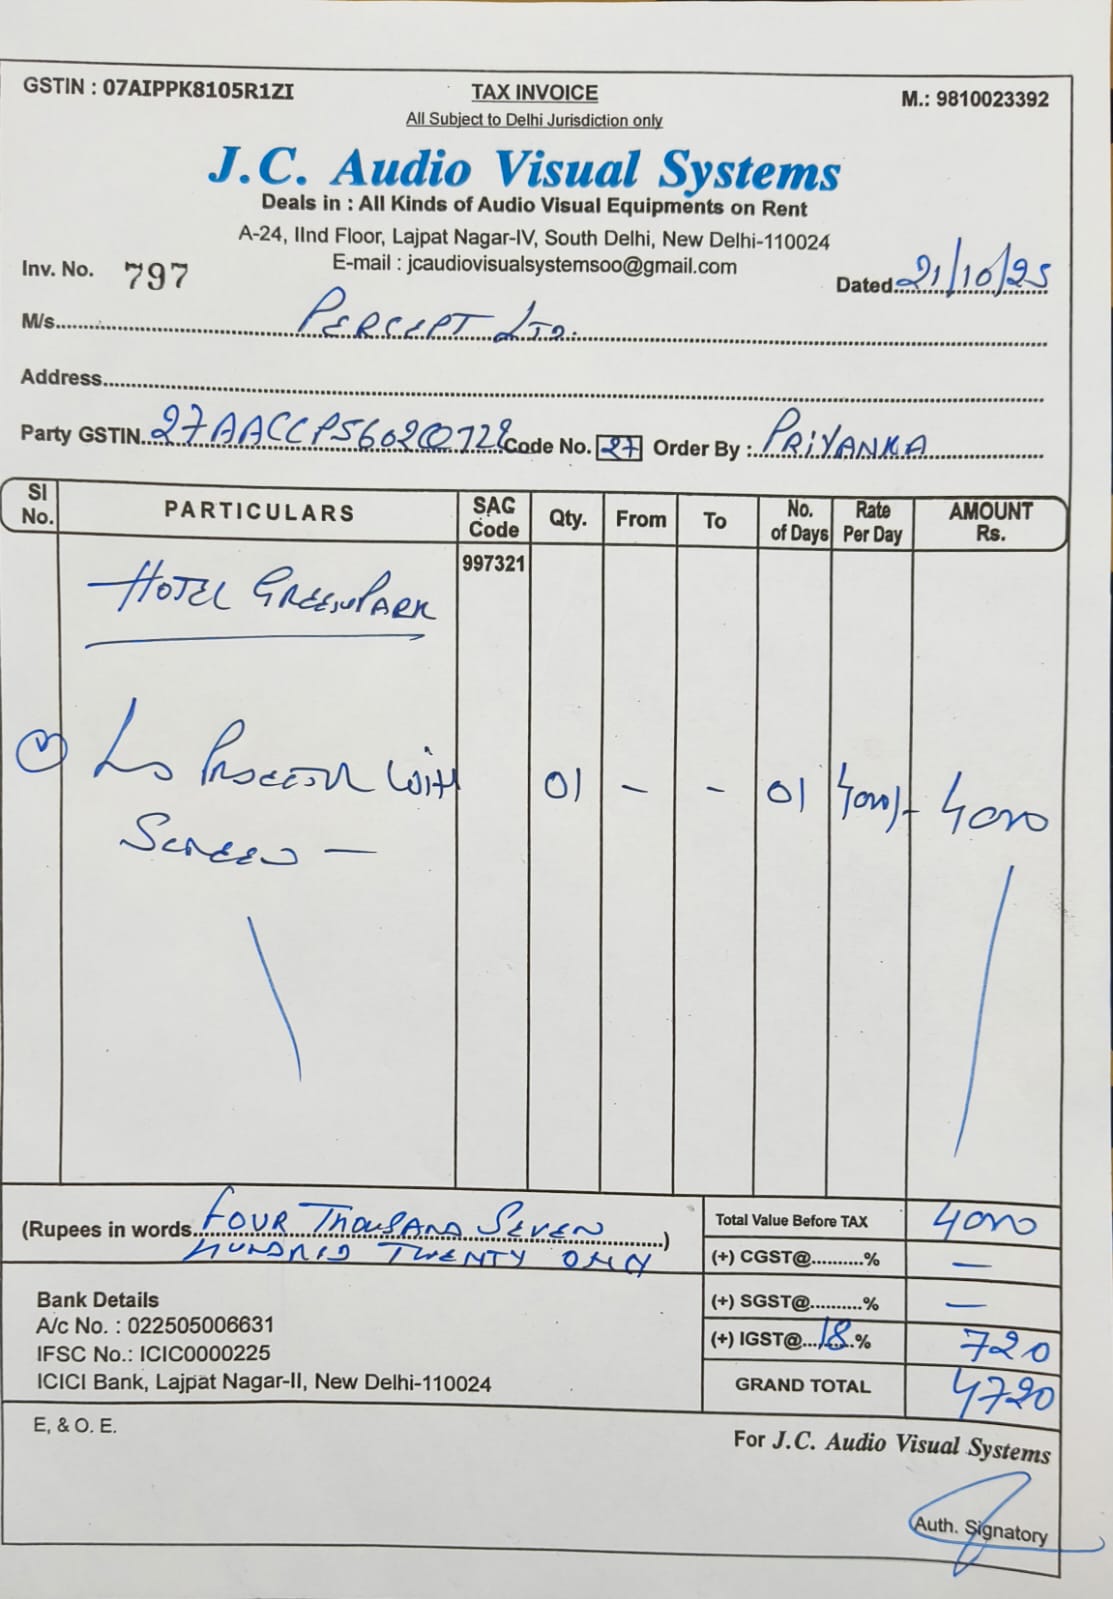 GSTIN : 07AIPPK8105R1ZI TAX INVOICE M.: 9810023392
All Subject to Delhi Jurisdiction only
J.C. Audio Visual Systems
Deals in : All Kinds of Audio Visual Equipments on Rent
A-24, IInd Floor, Lajpat Nagar-IV, South Delhi, New Delhi-110024
E-mail : jcaudiovisualsystemsoo@gmail.com
Inv. No. 797 Dated 21/10/25
M/s. PERCEPT LTD.
Address
Party GSTIN. 27AACCP5602Q1Z8 Code No. 27 Order By : PRIYANKA
Sl No. PARTICULARS SAG Code Qty. From To No. of Days Rate Per Day AMOUNT Rs.
997321
HOTEL GREENPARK
WITH 01 - - 01 4000/- 4000
SCREEN —
(Rupees in words FOUR THOUSAND SEVEN
HUNDRED TWENTY ONLY)
Total Value Before TAX 4000
(+) CGST@..........% —
(+) SGST@..........% —
(+) IGST@ 18 % 720
GRAND TOTAL 4720
Bank Details
A/c No. : 022505006631
IFSC No.: ICIC0000225
ICICI Bank, Lajpat Nagar-II, New Delhi-110024
E, & O. E.
For J.C. Audio Visual Systems
Auth. Signatory